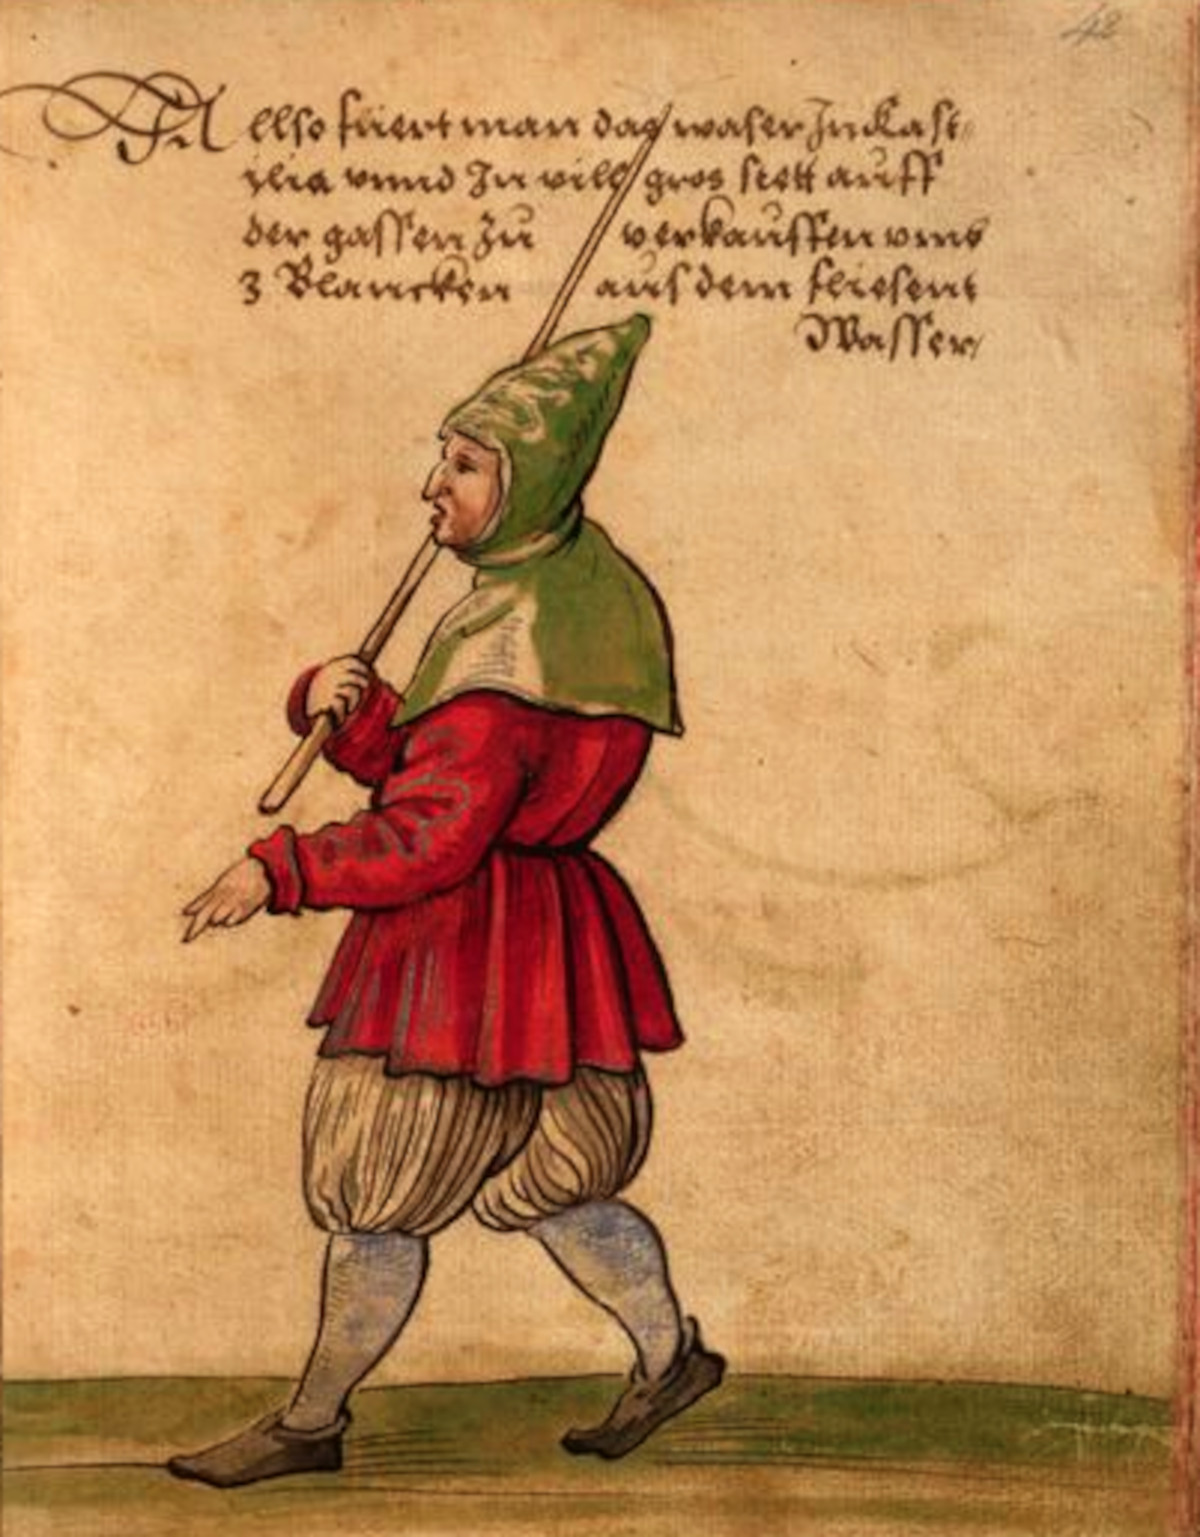 42
Allso fuert man das waser In Kast
ilia vnnd In vill gros stett auff
der gassen zu verkauffen vmb
3 Blancken aus dem fliesent
Wasser